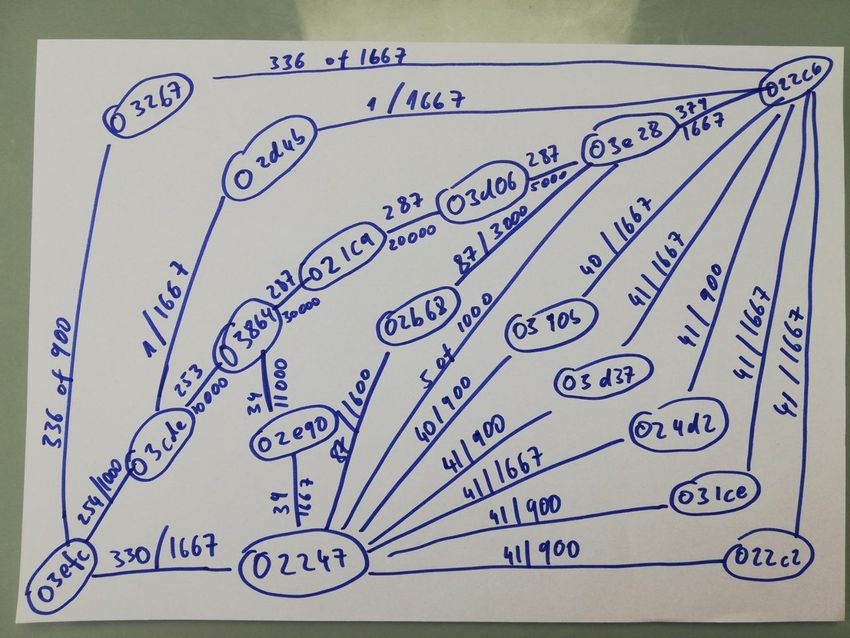 336 of 1667
03267
022c6
1/1667
02d4b
03e28
379
1667
287
5000
03d06
287
20000
87/3000
021c9
40/1667
41/1667
287
30000
03864
02b68
03905
41/900
41/1667
41/1667
1/1667
5 of 1000
253
10000
34
11000
336 of 900
03d37
024d2
03cde
02e90
87/1600
40/900
41/900
41/1667
031ce
254/1000
34
1667
41/900
03efc
330/1667
02247
41/900
022c2